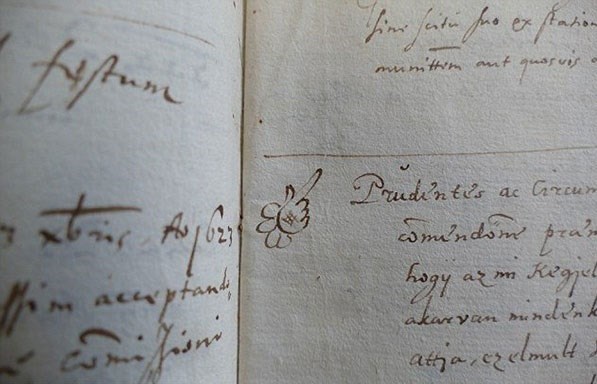 festum
xbris Ao 1623
ssim acceptandi,
com̄issioni
sine scitu suo ex station
munitt̄em aut quosvis a
Prudentes ac Circum
com̄endōne præm
hogÿ az mi Kegÿel
akarvan mindenk
attÿa, ez elmult